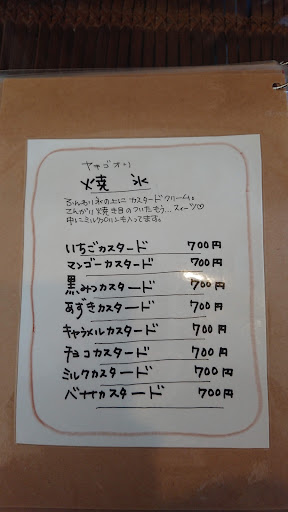 ヤキゴオリ
焼 氷
ふんわり氷の上に カスタードクリーム。
こんがり焼き目のついたもう…スイーツ♡
中にミルクプリンも入ってます。
いちごカスタード 700円
マンゴーカスタード 700円
黒みつカスタード 700円
あずきカスタード 700円
キャラメルカスタード 700円
チョコカスタード 700円
ミルクカスタード 700円
カスタード 700円